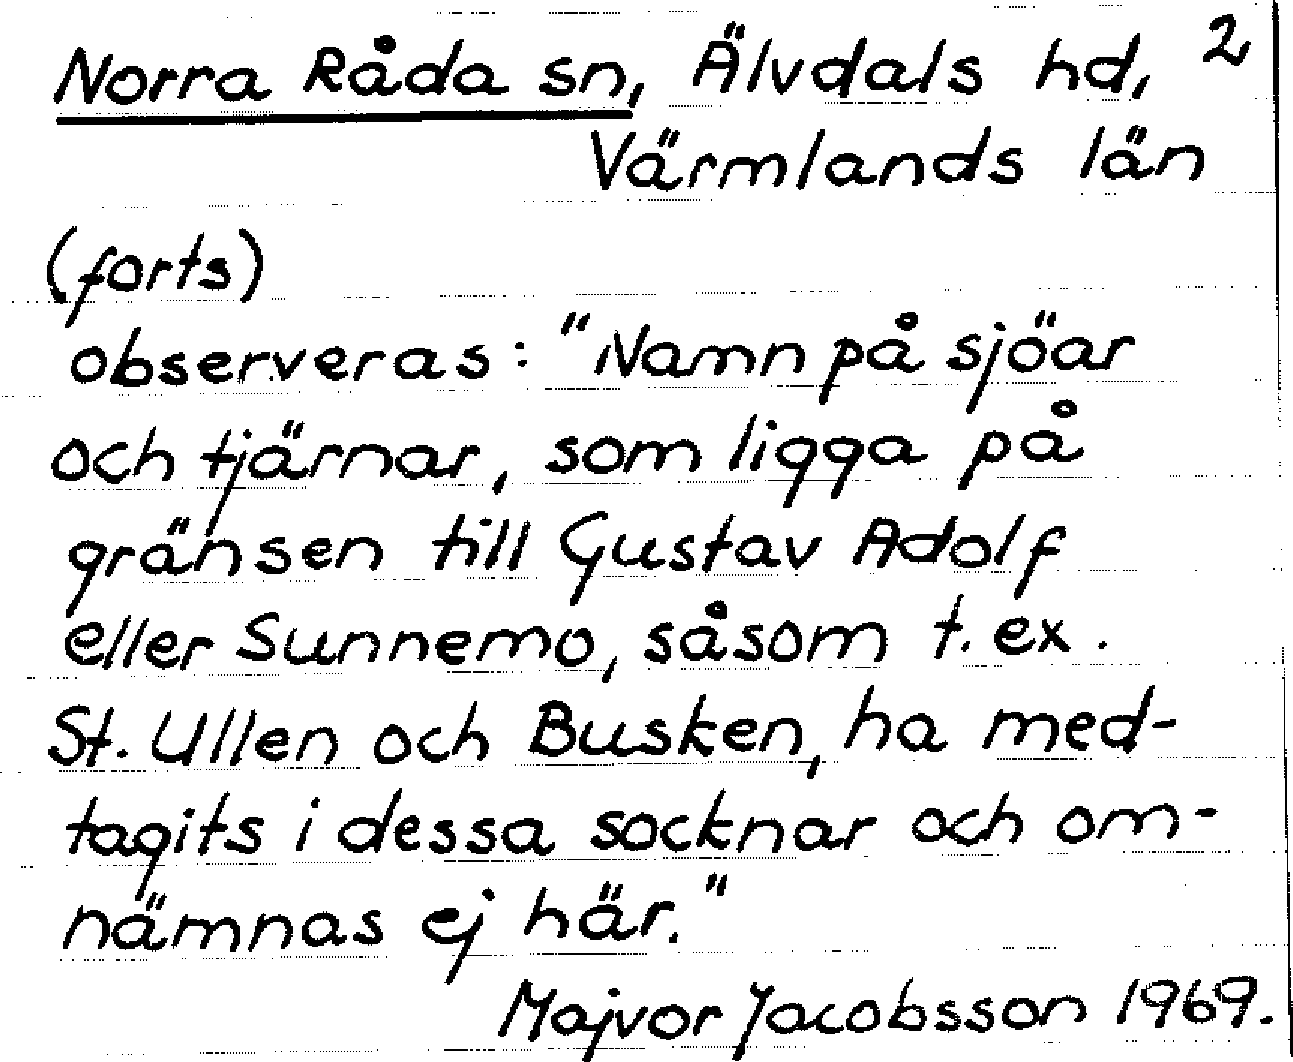 Norra Råda sn, Älvdals hd, 2
Värmlands län
(forts)
observeras: "Namn på sjöar
och tjärnar, som ligga på
gränsen till Gustav Adolf
eller Sunnemo, såsom t.ex.
St. Ullen och Busken, ha med-
tagits i dessa socknar och om-
nämnas ej här."
Majvor Jacobsson 1969.